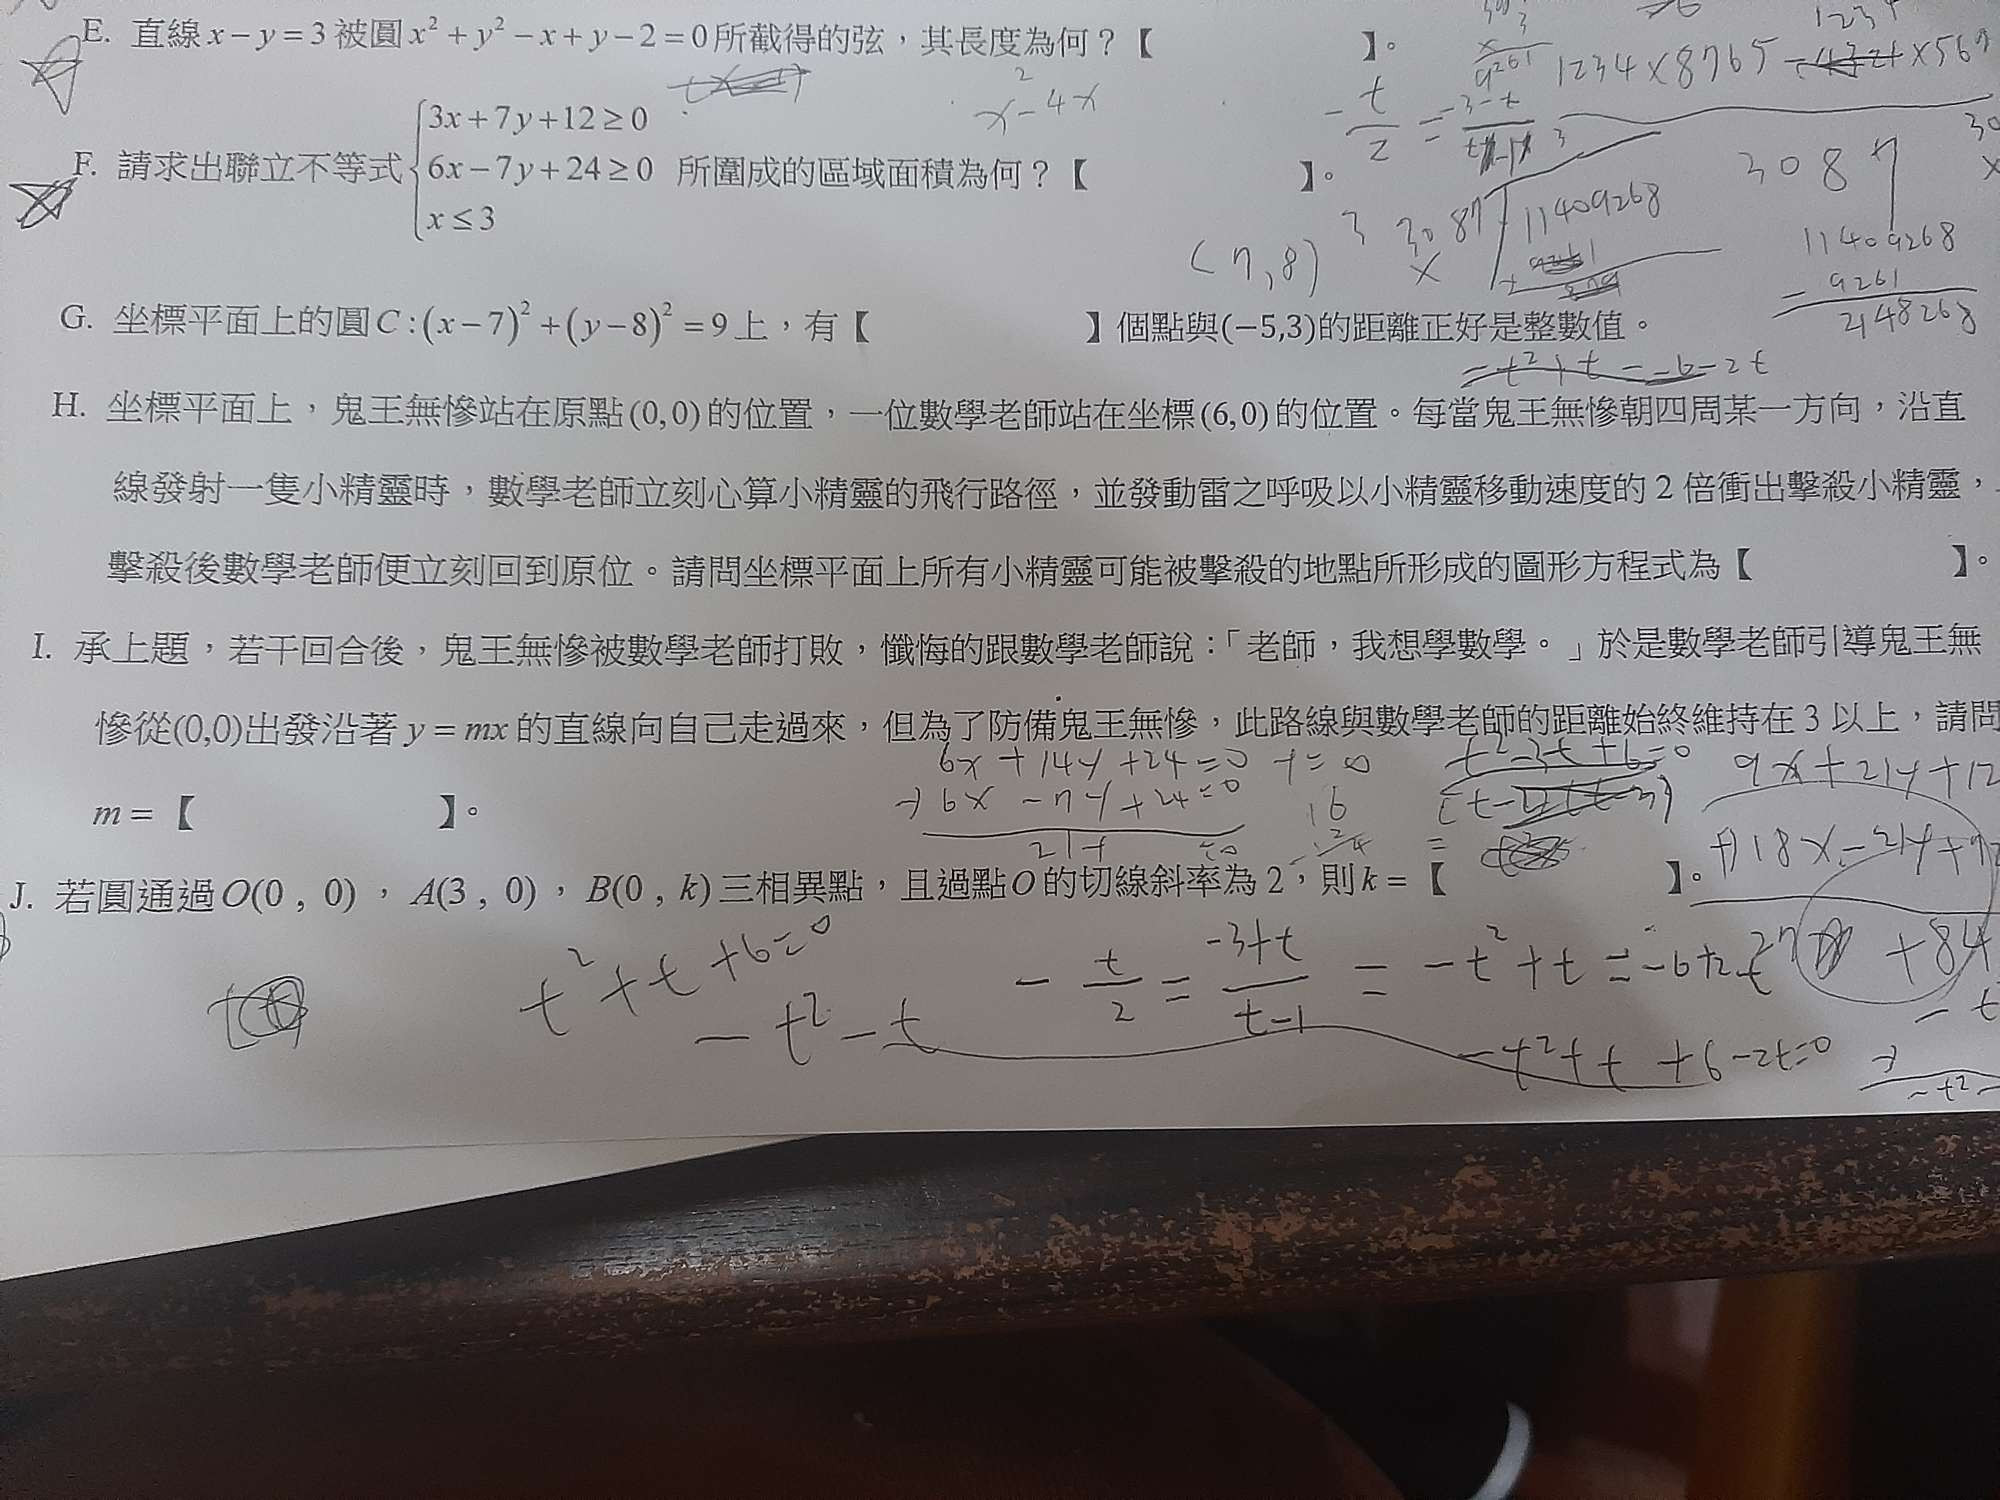 E. 直線 x − y = 3 被圓 x² + y² − x + y − 2 = 0 所截得的弦，其長度為何？【　　　】。
x² − 4x
1234×8765 −
F. 請求出聯立不等式 { 3x + 7y + 12 ≥ 0
6x − 7y + 24 ≥ 0 所圍成的區域面積為何？【　　　】。
x ≤ 3
3087
(7,8)
11409268
11409268
9261
2148268
G. 坐標平面上的圓 C : (x − 7)² + (y − 8)² = 9 上，有【　　　】個點與(−5,3)的距離正好是整數值。
H. 坐標平面上，鬼王無慘站在原點(0,0)的位置，一位數學老師站在坐標(6,0)的位置。每當鬼王無慘朝四周某一方向，沿直
線發射一隻小精靈時，數學老師立刻心算小精靈的飛行路徑，並發動雷之呼吸以小精靈移動速度的 2 倍衝出擊殺小精靈，
擊殺後數學老師便立刻回到原位。請問坐標平面上所有小精靈可能被擊殺的地點所形成的圖形方程式為【　　　】。
I. 承上題，若干回合後，鬼王無慘被數學老師打敗，懺悔的跟數學老師說：「老師，我想學數學。」於是數學老師引導鬼王無
慘從(0,0)出發沿著 y = mx 的直線向自己走過來，但為了防備鬼王無慘，此路線與數學老師的距離始終維持在 3 以上，請問
6x + 14y + 24 = 0
t² − 3t + 6 = 0
9x + 21y + 12
m = 【　　　】。
18x − 21y + 72
J. 若圓通過 O(0 , 0)，A(3 , 0)，B(0 , k) 三相異點，且過點 O 的切線斜率為 2，則 k = 【　　　】。
t² + t + 6 = 0
− t/2 = −3+t / t−1 = −t² + t = −6 + 2t
+ 84
− t² − t
−t² + t + 6 − 2t = 0